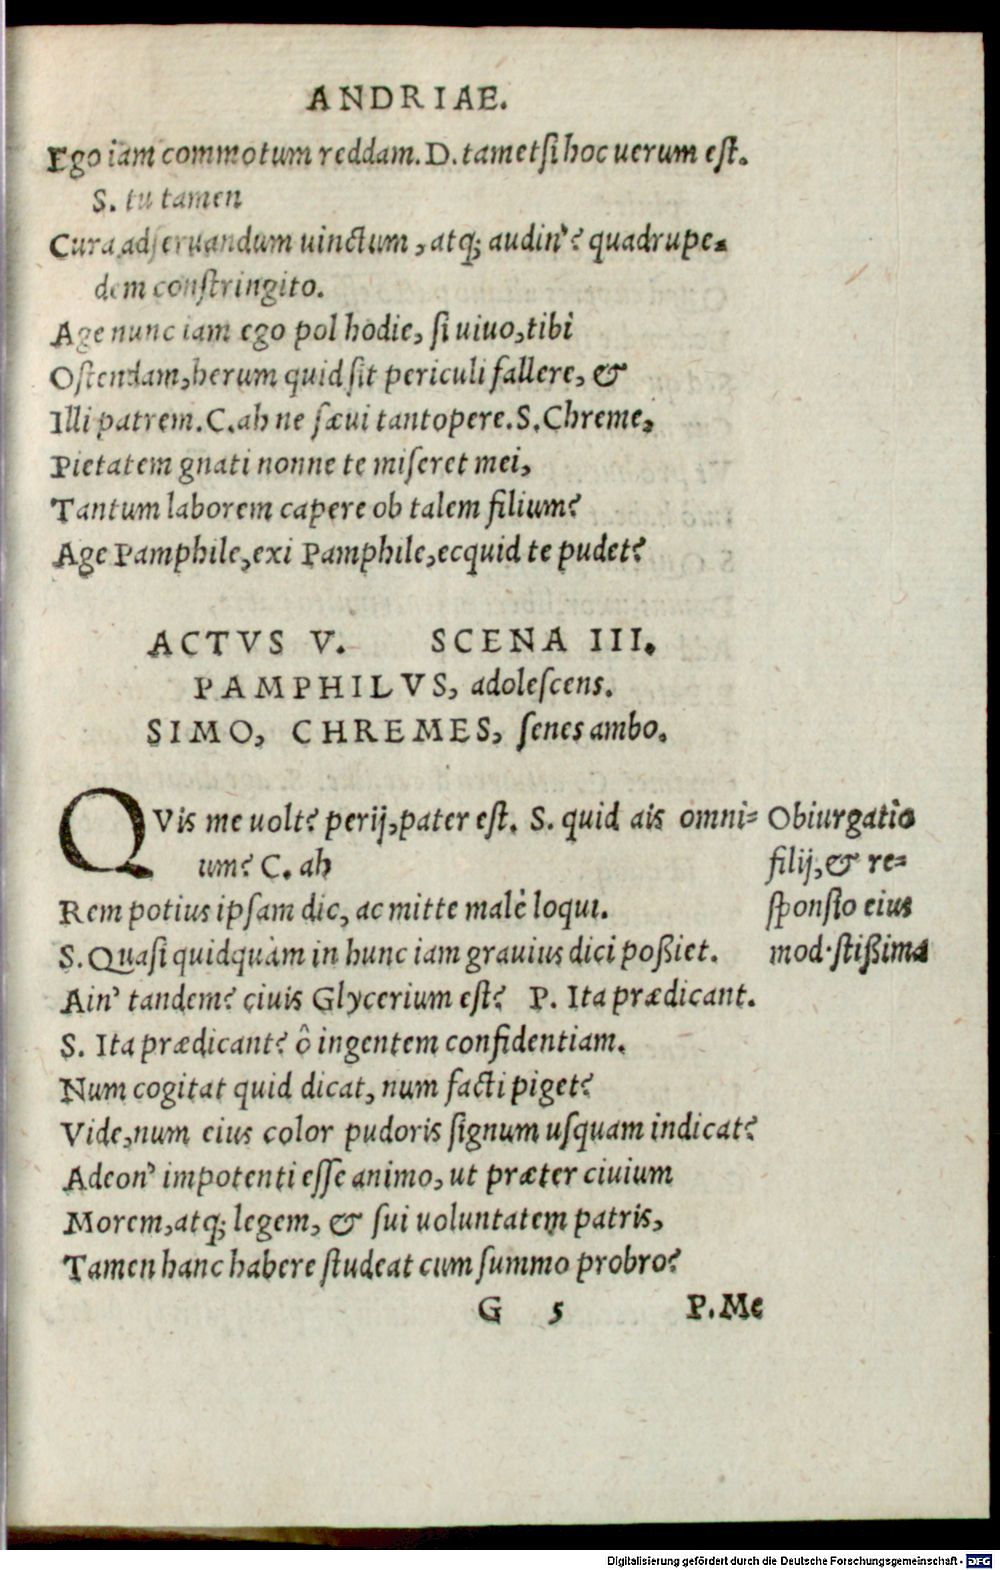 ANDRIAE.
Ego iam commotum reddam. D. tametsi hoc uerum est.
S. tu tamen
Cura adseruandum uinctum, atq; audin'? quadrupe-
dem constringito.
Age nunc iam ego pol hodie, si uiuo, tibi
Ostendam, herum quid sit periculi fallere, &
Illi patrem. C. ah ne sæui tantopere. S. Chreme,
Pietatem gnati nonne te miseret mei,
Tantum laborem capere ob talem filium?
Age Pamphile, exi Pamphile, ecquid te pudet?
ACTVS V. SCENA III.
PAMPHILVS, adolescens.
SIMO, CHREMES, senes ambo.
QVis me uolt? perij, pater est. S. quid ais omni-
um? C. ah
Rem potius ipsam dic, ac mitte malè loqui.
S. Quasi quidquàm in hunc iam grauius dici poßiet.
Ain' tandem? ciuis Glycerium est? P. Ita prædicant.
S. Ita prædicant? ô ingentem confidentiam.
Num cogitat quid dicat, num facti piget?
Vide, num eius color pudoris signum usquam indicat?
Adeon' impotenti esse animo, ut præter ciuium
Morem, atq; legem, & sui uoluntatem patris,
Tamen hanc habere studeat cum summo probro?
Obiurgatio
filij, & re-
sponsio eius
modestißima
G 5 P. Me
Digitalisierung gefördert durch die Deutsche Forschungsgemeinschaft - DFG